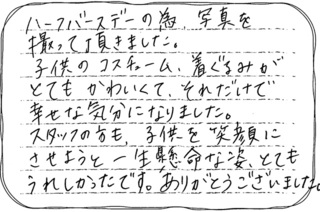 ハーフバースデーの為、写真を
撮って頂きました。
子供のコスチューム、着ぐるみが
とてもかわいくて、それだけで
幸せな気分になりました。
スタッフの方も、子供を笑顔に
させようと一生懸命な姿、とても
うれしかったです。ありがとうございました。